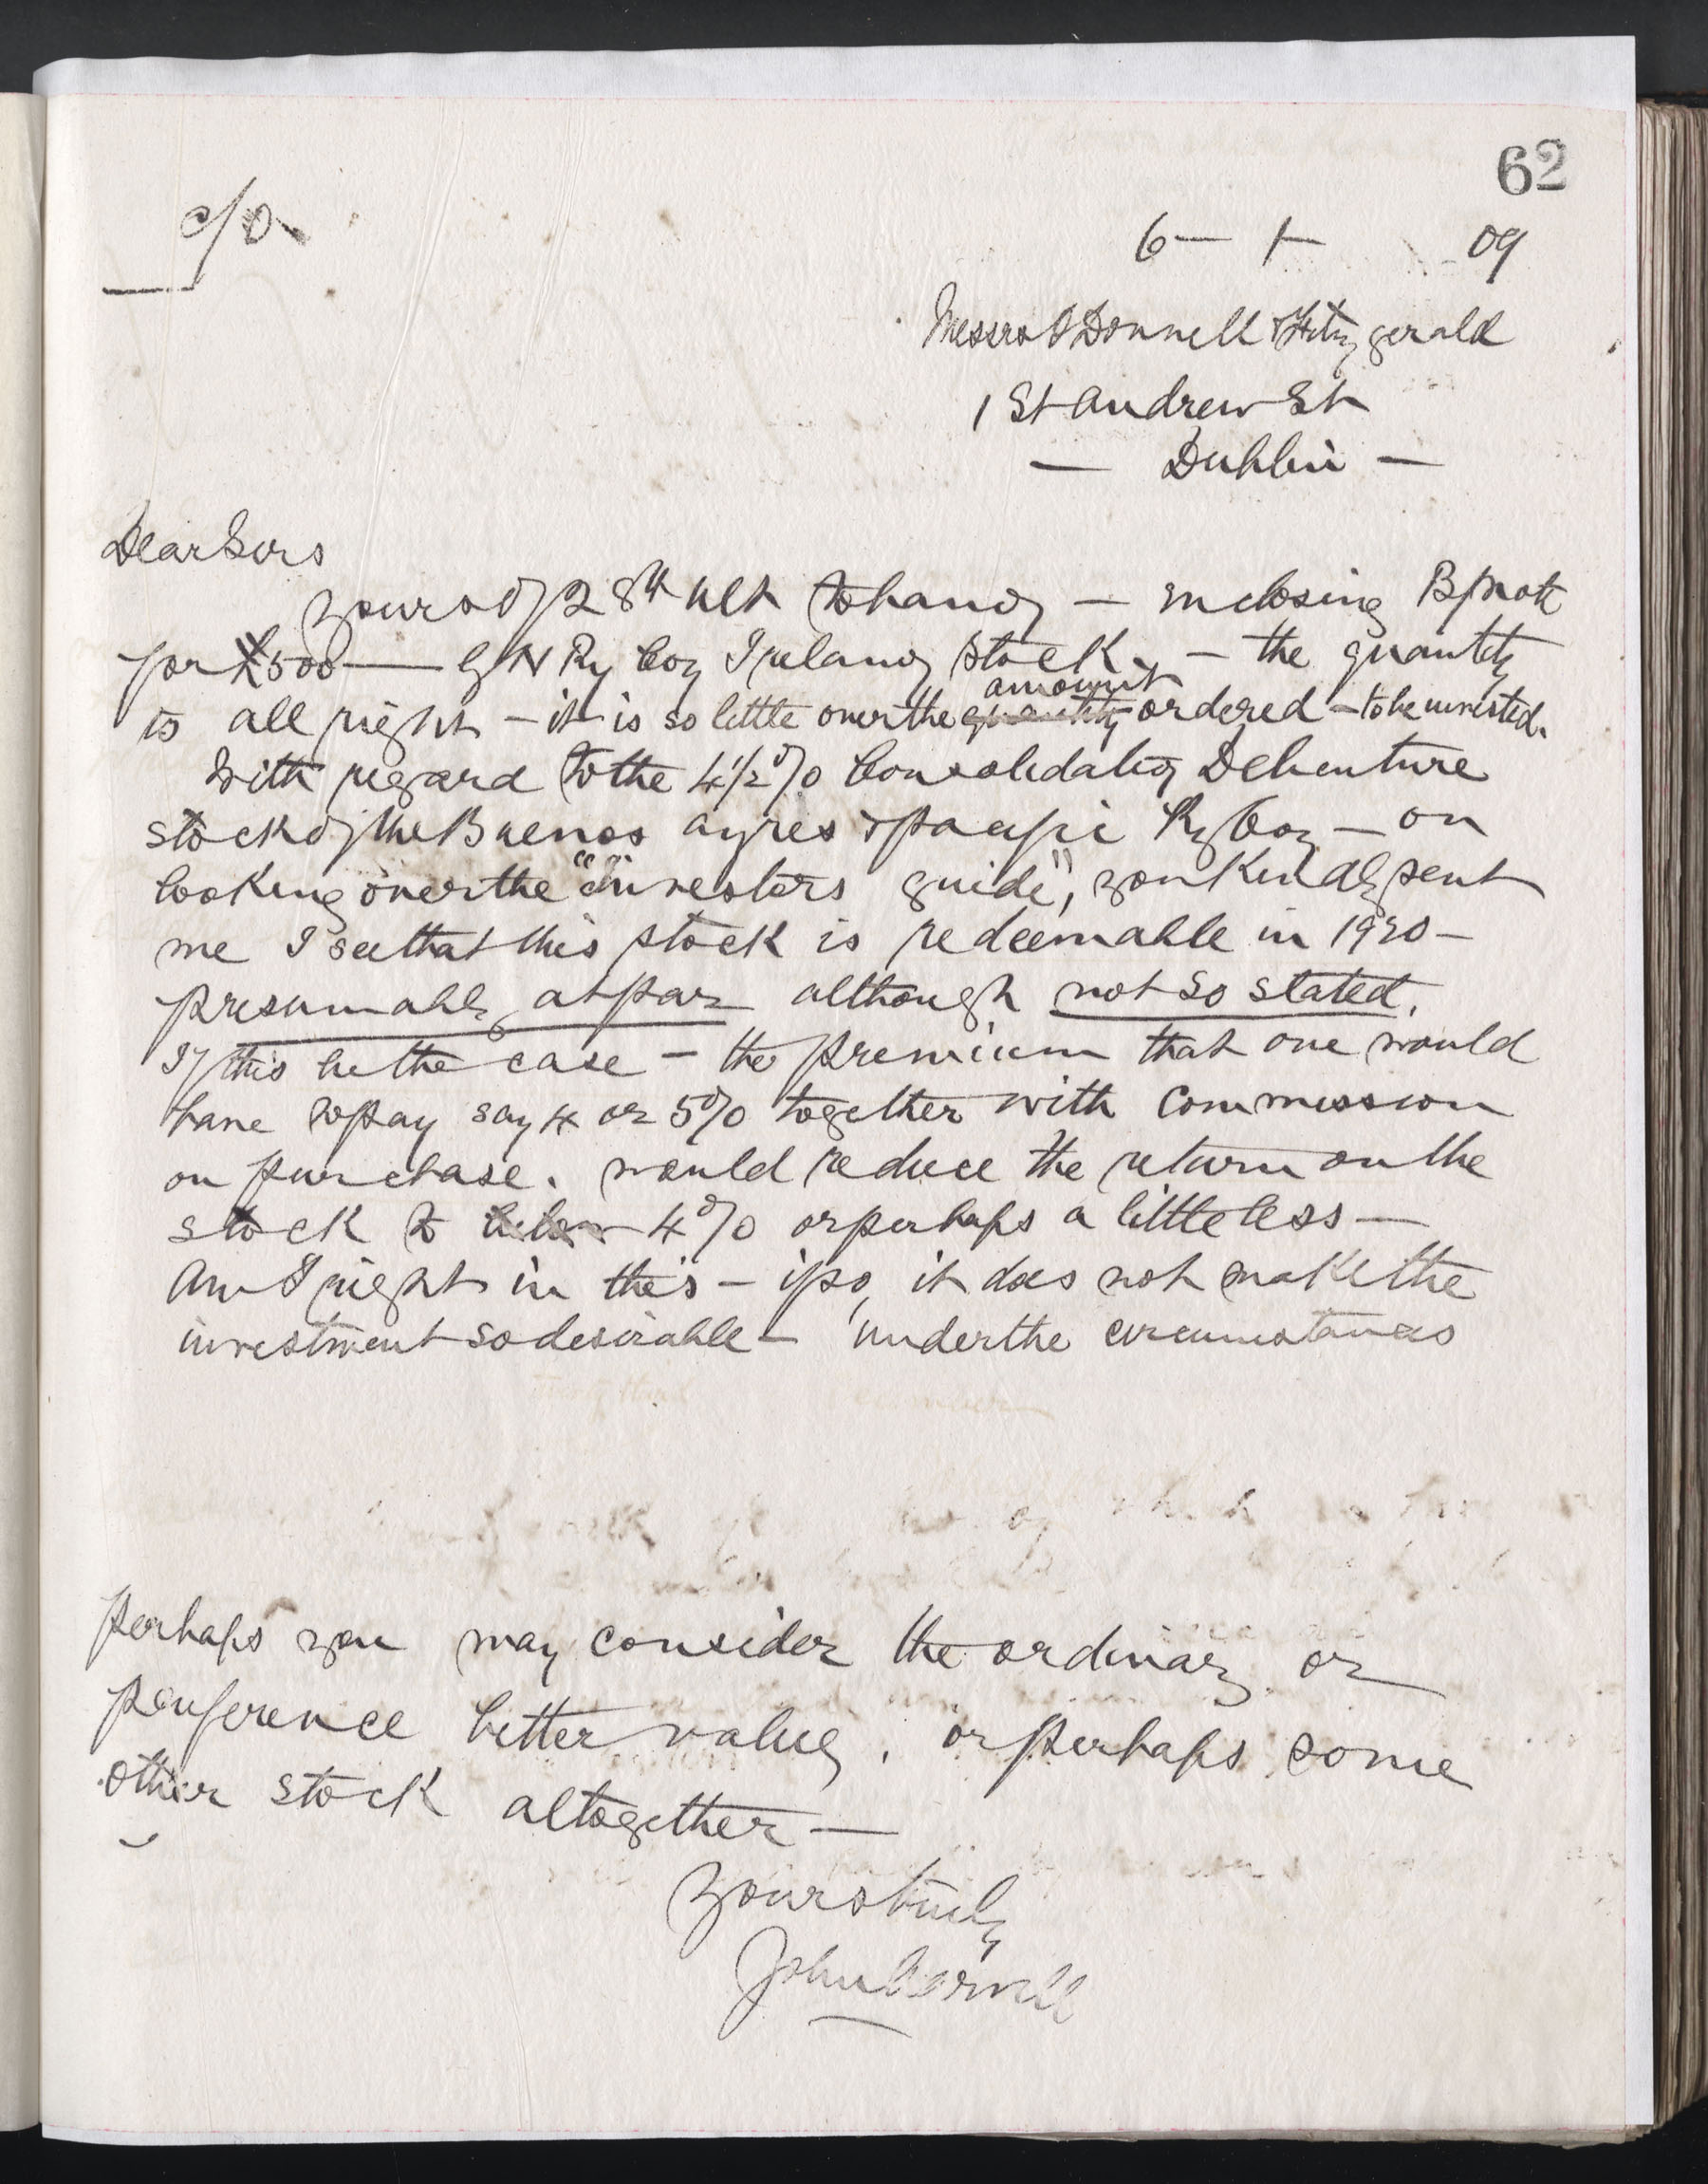 62
c/o
6 - 1 - 09
Messrs O Donnell & Fitzgerald
1 St Andrew St
— Dublin —
Dear Sirs
Yours of 28th ult to hand — enclosing B/note
for £500 — G N Ry Coy Ireland stock. — the quantity
amount
is all right — it is so little over the quantity ordered — to be invested.
With regard to the 4½% Consolidated Debenture
stock of the Buenos Ayres & Pacific Ry Coy — on
looking over the "Investors guide", you kindly sent
me I see that this stock is redeemable in 1930 —
presumably at par although not so stated.
If this be the case — the premium that one would
have to pay say 4 or 5% together with Commission
on purchase. would reduce the return on the
stock to below 4% or perhaps a little less —
Am I right in this — if so, it does not make the
investment so desirable — under the circumstances
perhaps you may consider the ordinary or
preference better value, or perhaps some
other stock altogether —
Yours truly
John